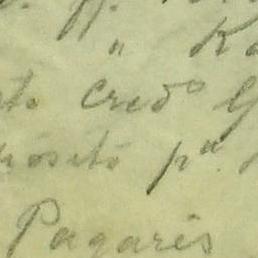 " Ka
to Cred.º G
pósito pª.
Pagarés